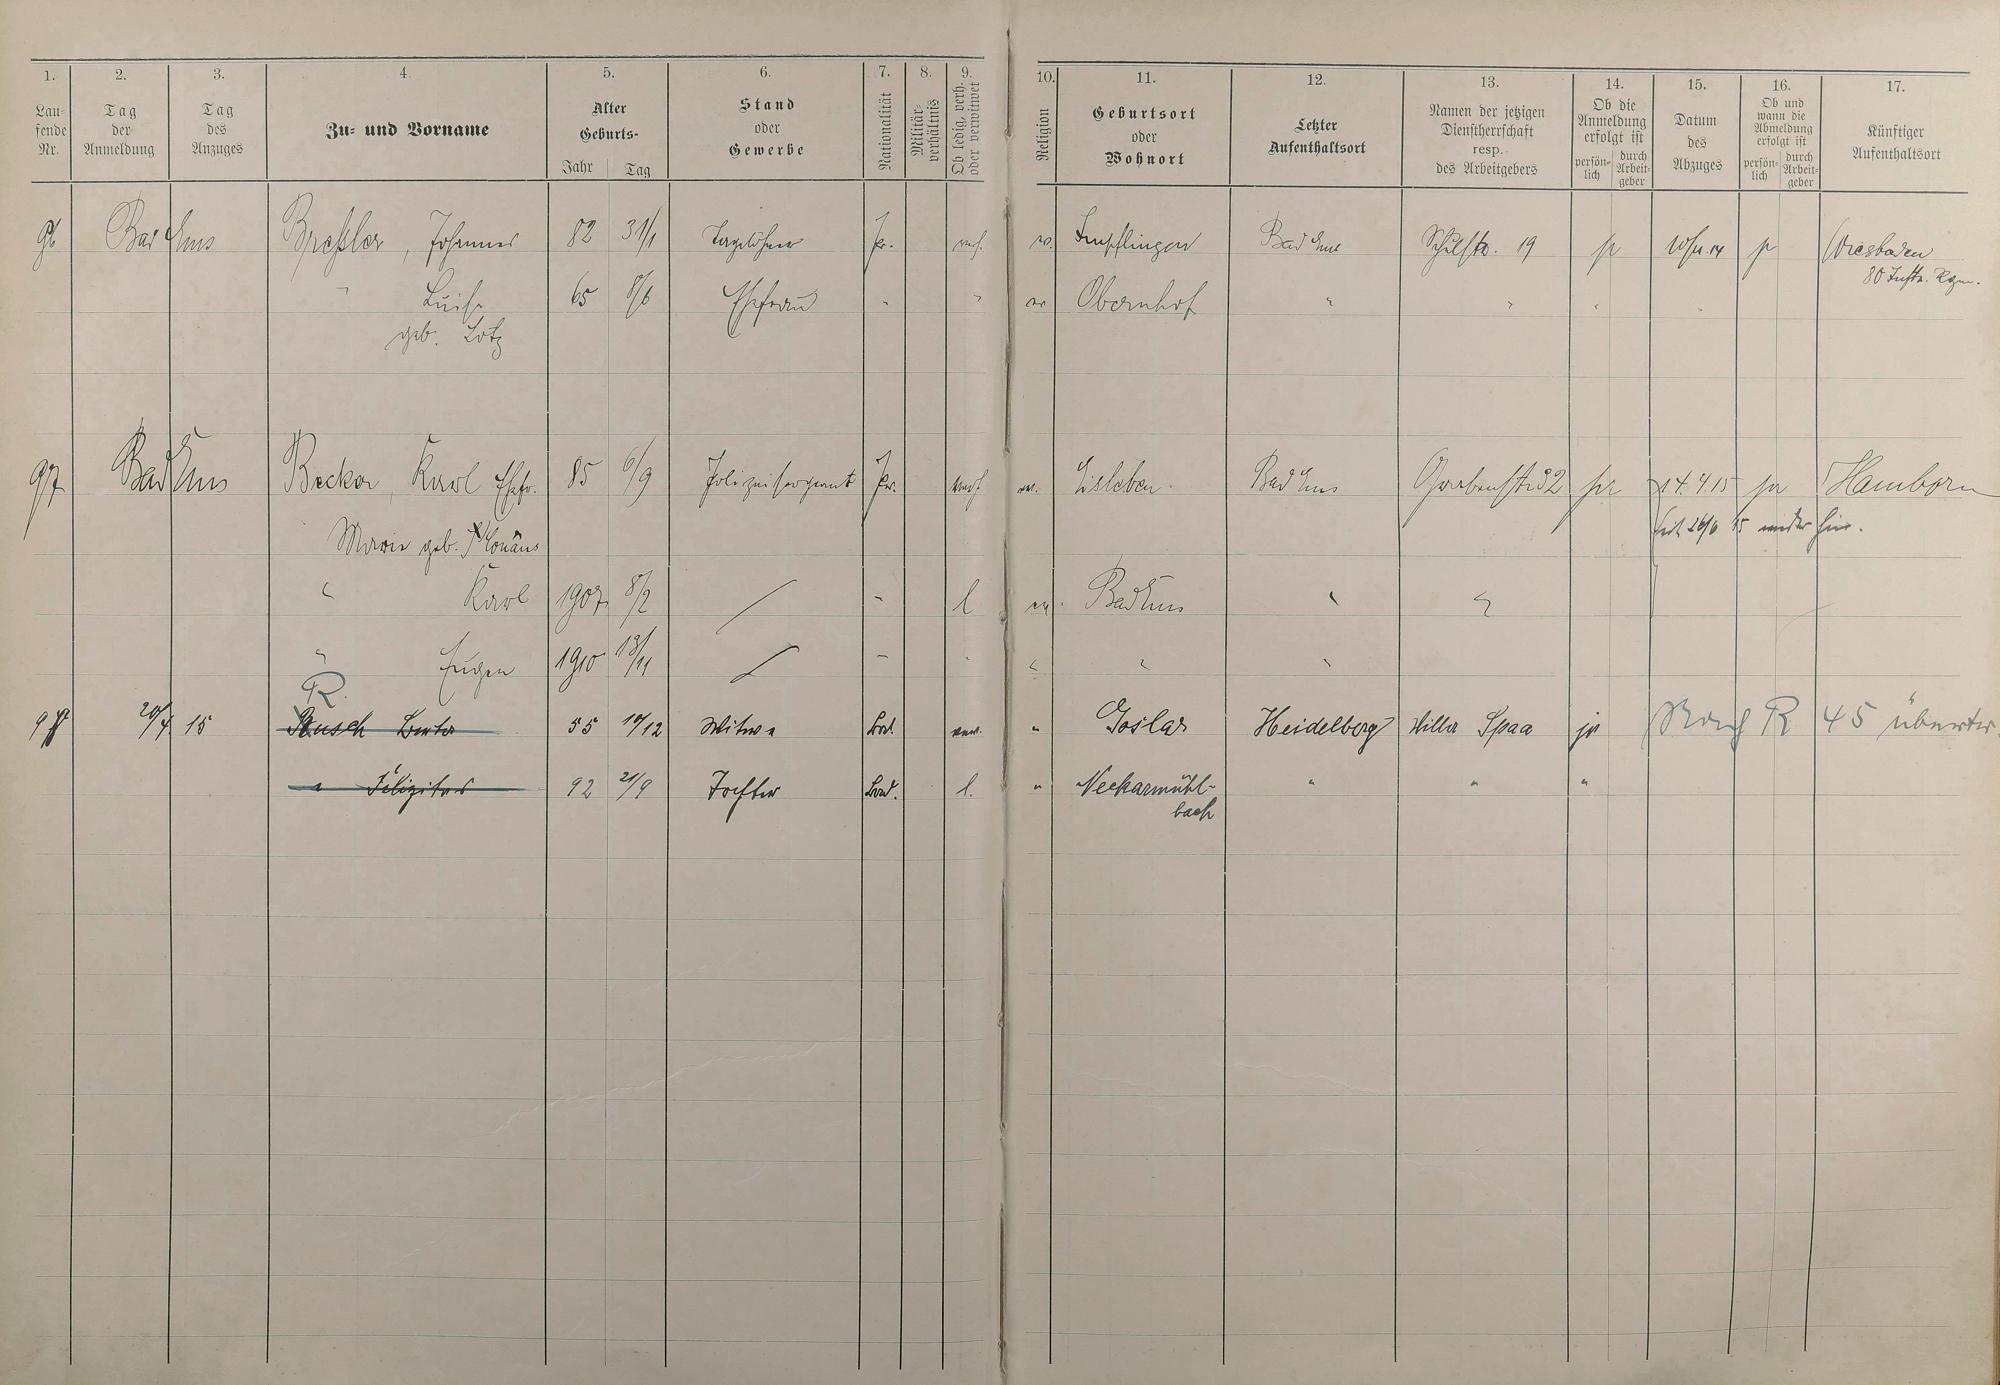 1. 2. 3. 4. 5. 6. 7. 8. 9. 10. 11. 12. 13. 14. 15. 16. 17.
Lau-
fende
Nr.
Tag
der
Anmeldung
Tag
des
Anzuges
Zu- und Vorname
Alter
Geburts-
Jahr Tag
Stand
oder
Gewerbe
Nationalität
Militär-
verhältnis
Ob ledig, verh.
oder verwitwet
Religion
Geburtsort
oder
Wohnort
Letzter
Aufenthaltsort
Namen der jetzigen
Dienstherrschaft
resp.
des Arbeitgebers
Ob die
Anmeldung
erfolgt ist
persön-
lich
durch
Arbeit-
geber
Datum
des
Abzuges
Ob und
wann die
Abmeldung
erfolgt ist
persön-
lich
durch
Arbeit-
geber
Künftiger
Aufenthaltsort
96 Bad Ems Breßler, Johannes 82 31/1 Tagelöhner Pr. verh. ev. Bad Ems Schulstr. 19 Wiesbaden
80 Inftr. Rgm.
" Luise 65 8/6 Ehefrau " " ev Obernhof " " " "
geb. Lotz
97 Bad Ems Becker, Karl Ehefr. 85 6/9 Polizeisergeant Pr. verh ev. Eisleben Bad Ems Grabenstr 32 14.4.15 Hamborn
Marie geb.
seit 26/6 15 wieder hier.
" Karl 1907 8/2 / " l ev. Bad Ems " "
" Eugen 1910 13/11 / " " " " "
R.
20/4 15 Busch 55 Witwe Bad. verw. " Goslar Heidelberg Villa Spaa ja Nach R 45 übertr.
" Felizitas 92 21/9 Tochter Bad. l. " Neckarmühl- " " "
bach